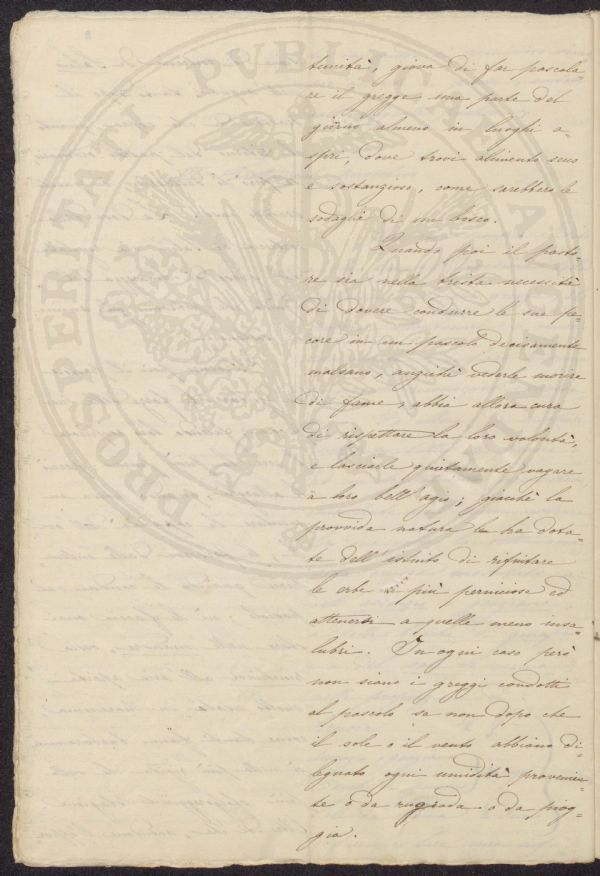 tunità, giova di far pascola-
re il gregge una parte del
giorno almeno in luoghi a-
spri, dove trovi alimento secco
e sostanzioso, come sarebbero le
sodaglie di un bosco.
Quando poi il pasto-
re sia nella trista necessità
di dovere condurre le sue pe-
core in un pascolo decisamente
malsano, anzichè vederle morire
di fame, abbia allora cura
di rispettare la loro volontà,
e lasciarle quietamente vagare
a loro bell'agio; giacchè la
provvida natura le ha dota-
te dell'istinto di rifiutare
le erbe più perniciose ed
attenersi a quelle meno insa-
lubri. In ogni caso però
non siano i greggi condotti
al pascolo se non dopo che
il sole o il vento abbiano di-
leguato ogni umidità provenien-
te o da rugiada o da piog-
gia.
PROSPERITATI PVBLICAE AVGENDAE